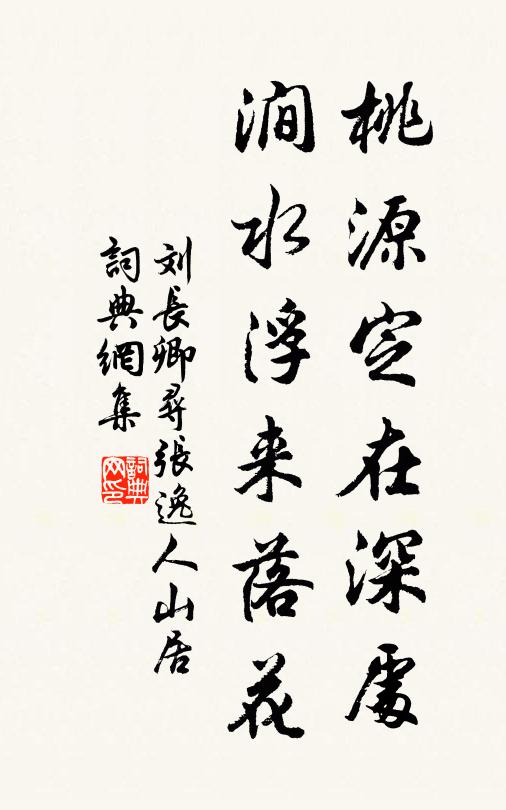 桃源定在深處
澗水浮来落花
刘長卿尋張逸人山居
詞典網集
詞典网印